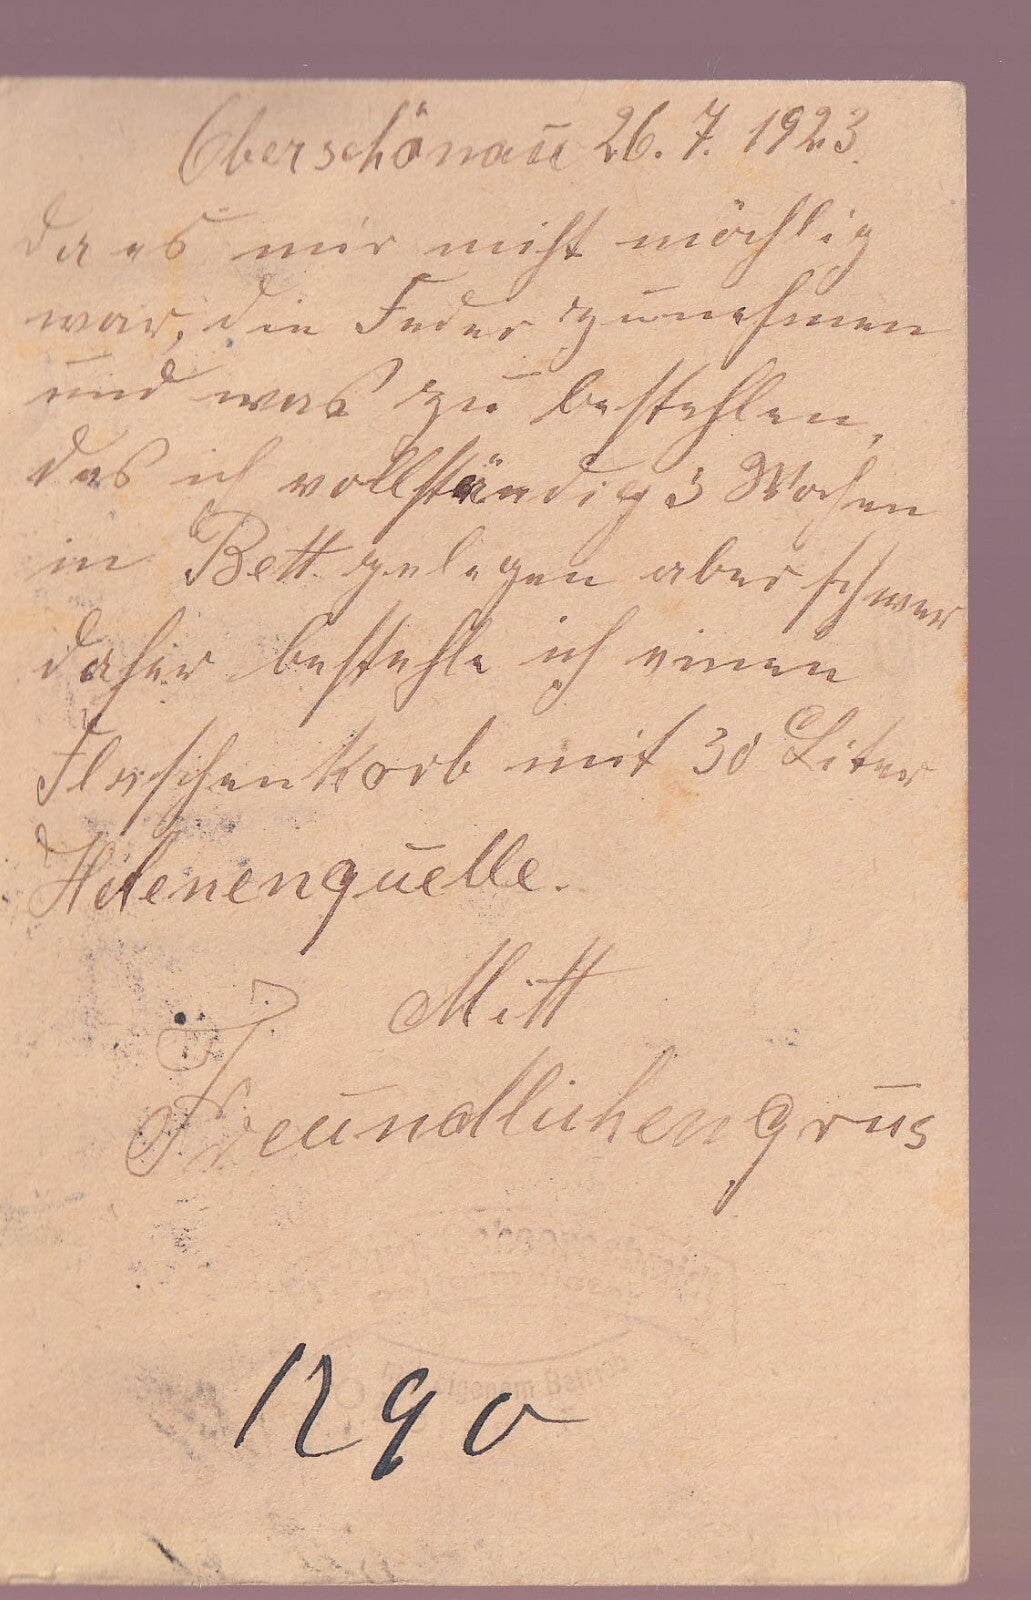 Oberschönau 26. 7. 1923.
da es mir nicht möchlig
war, die Feder zunehmen
und was zu bestehlen,
das ich vollständig 3 Wochen
in Bett gelegen aber schwer
daher bestehle ich einen
Flaschenkorb mit 30 Liter
Helenenquelle.
Mitt
Freundlichengrus
1290